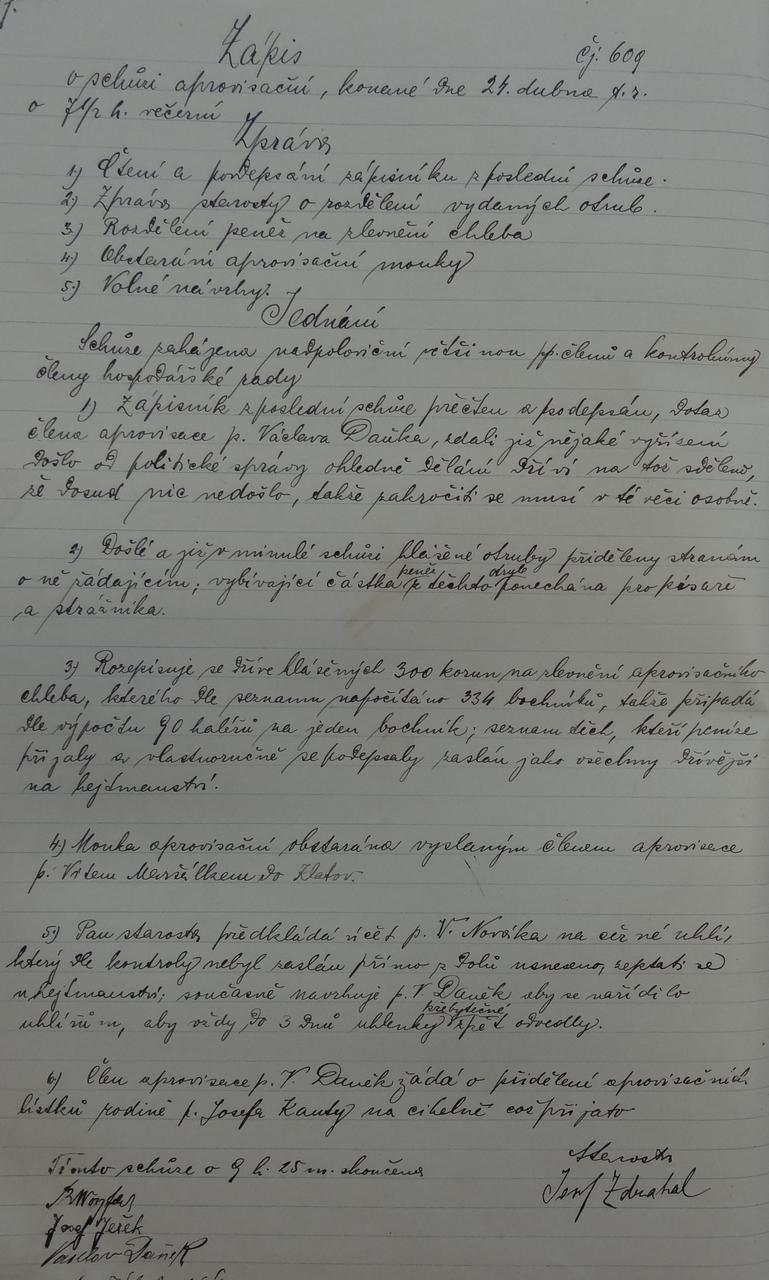 Zápis čj: 609
o schůzi aprovisační, konané dne 24. dubna t. r.
o 7 1/2 h. večerní
Zpráva
1) Čtení a podepsání zápisníku z poslední schůze.
2) Zpráva starosty o rozdělení vydaných otrub.
3) Rozdělení peněz na zlevnění chleba
4) Obstarání aprovisační mouky
5) Volné návrhy.
Jednání
Schůze zahájena nadpoloviční většinou pp. členů a kontrolními
členy hospodářské rady
1) Zápisník z poslední schůze přečten a podepsán, dotaz
člena aprovisace p. Václava Daňka, zdali již nějaké vyřízení
došlo od politické správy ohledně dělání dříví na což sděleno,
že dosud nic nedošlo, takže zakročiti se musí v té věci osobně.
2) Došlé a již v minulé schůzi hlášené otruby přiděleny stranám
o ně žádajícím; vybívající částka peněz z těchto otrub ponechána pro písaře
a strážníka.
3) Rozepisuje se dříve hlášených 300 korun na zlevnění aprovisačního
chleba, kterého dle seznamu napočítáno 334 bochníků, takže připadá
dle výpočtu 90 haléřů na jeden bochník; seznam těch, kteří peníze
přijaly a vlastnoručně se podepsaly zaslán jako všechny dřívější
na hejtmanství.
4) Mouka aprovisační obstarána vyslaným členem aprovisace
p. Vítem Maršálkem do Klatov.
5) Pan starosta předkládá účet p. V. Nováka na černé uhlí,
který dle kontroly nebyl zaslán přímo z dolů usneseno, zeptati se
u hejtmanství; současně navrhuje p. V. Daněk, aby se nařídilo
uhlířům, aby vždy do 3 dnů uhlenky přebytečné zpět odvedly.
6) Člen aprovisace p. V. Daněk žádá o přidělení aprovisačních
lístků rodině p. Josefa Kauty na cihelně což přijato
Tímto schůze o 9 h. 25 m. skončena
Starosta
Josef Zdrahal
Josef Ješek
Václav Daněk